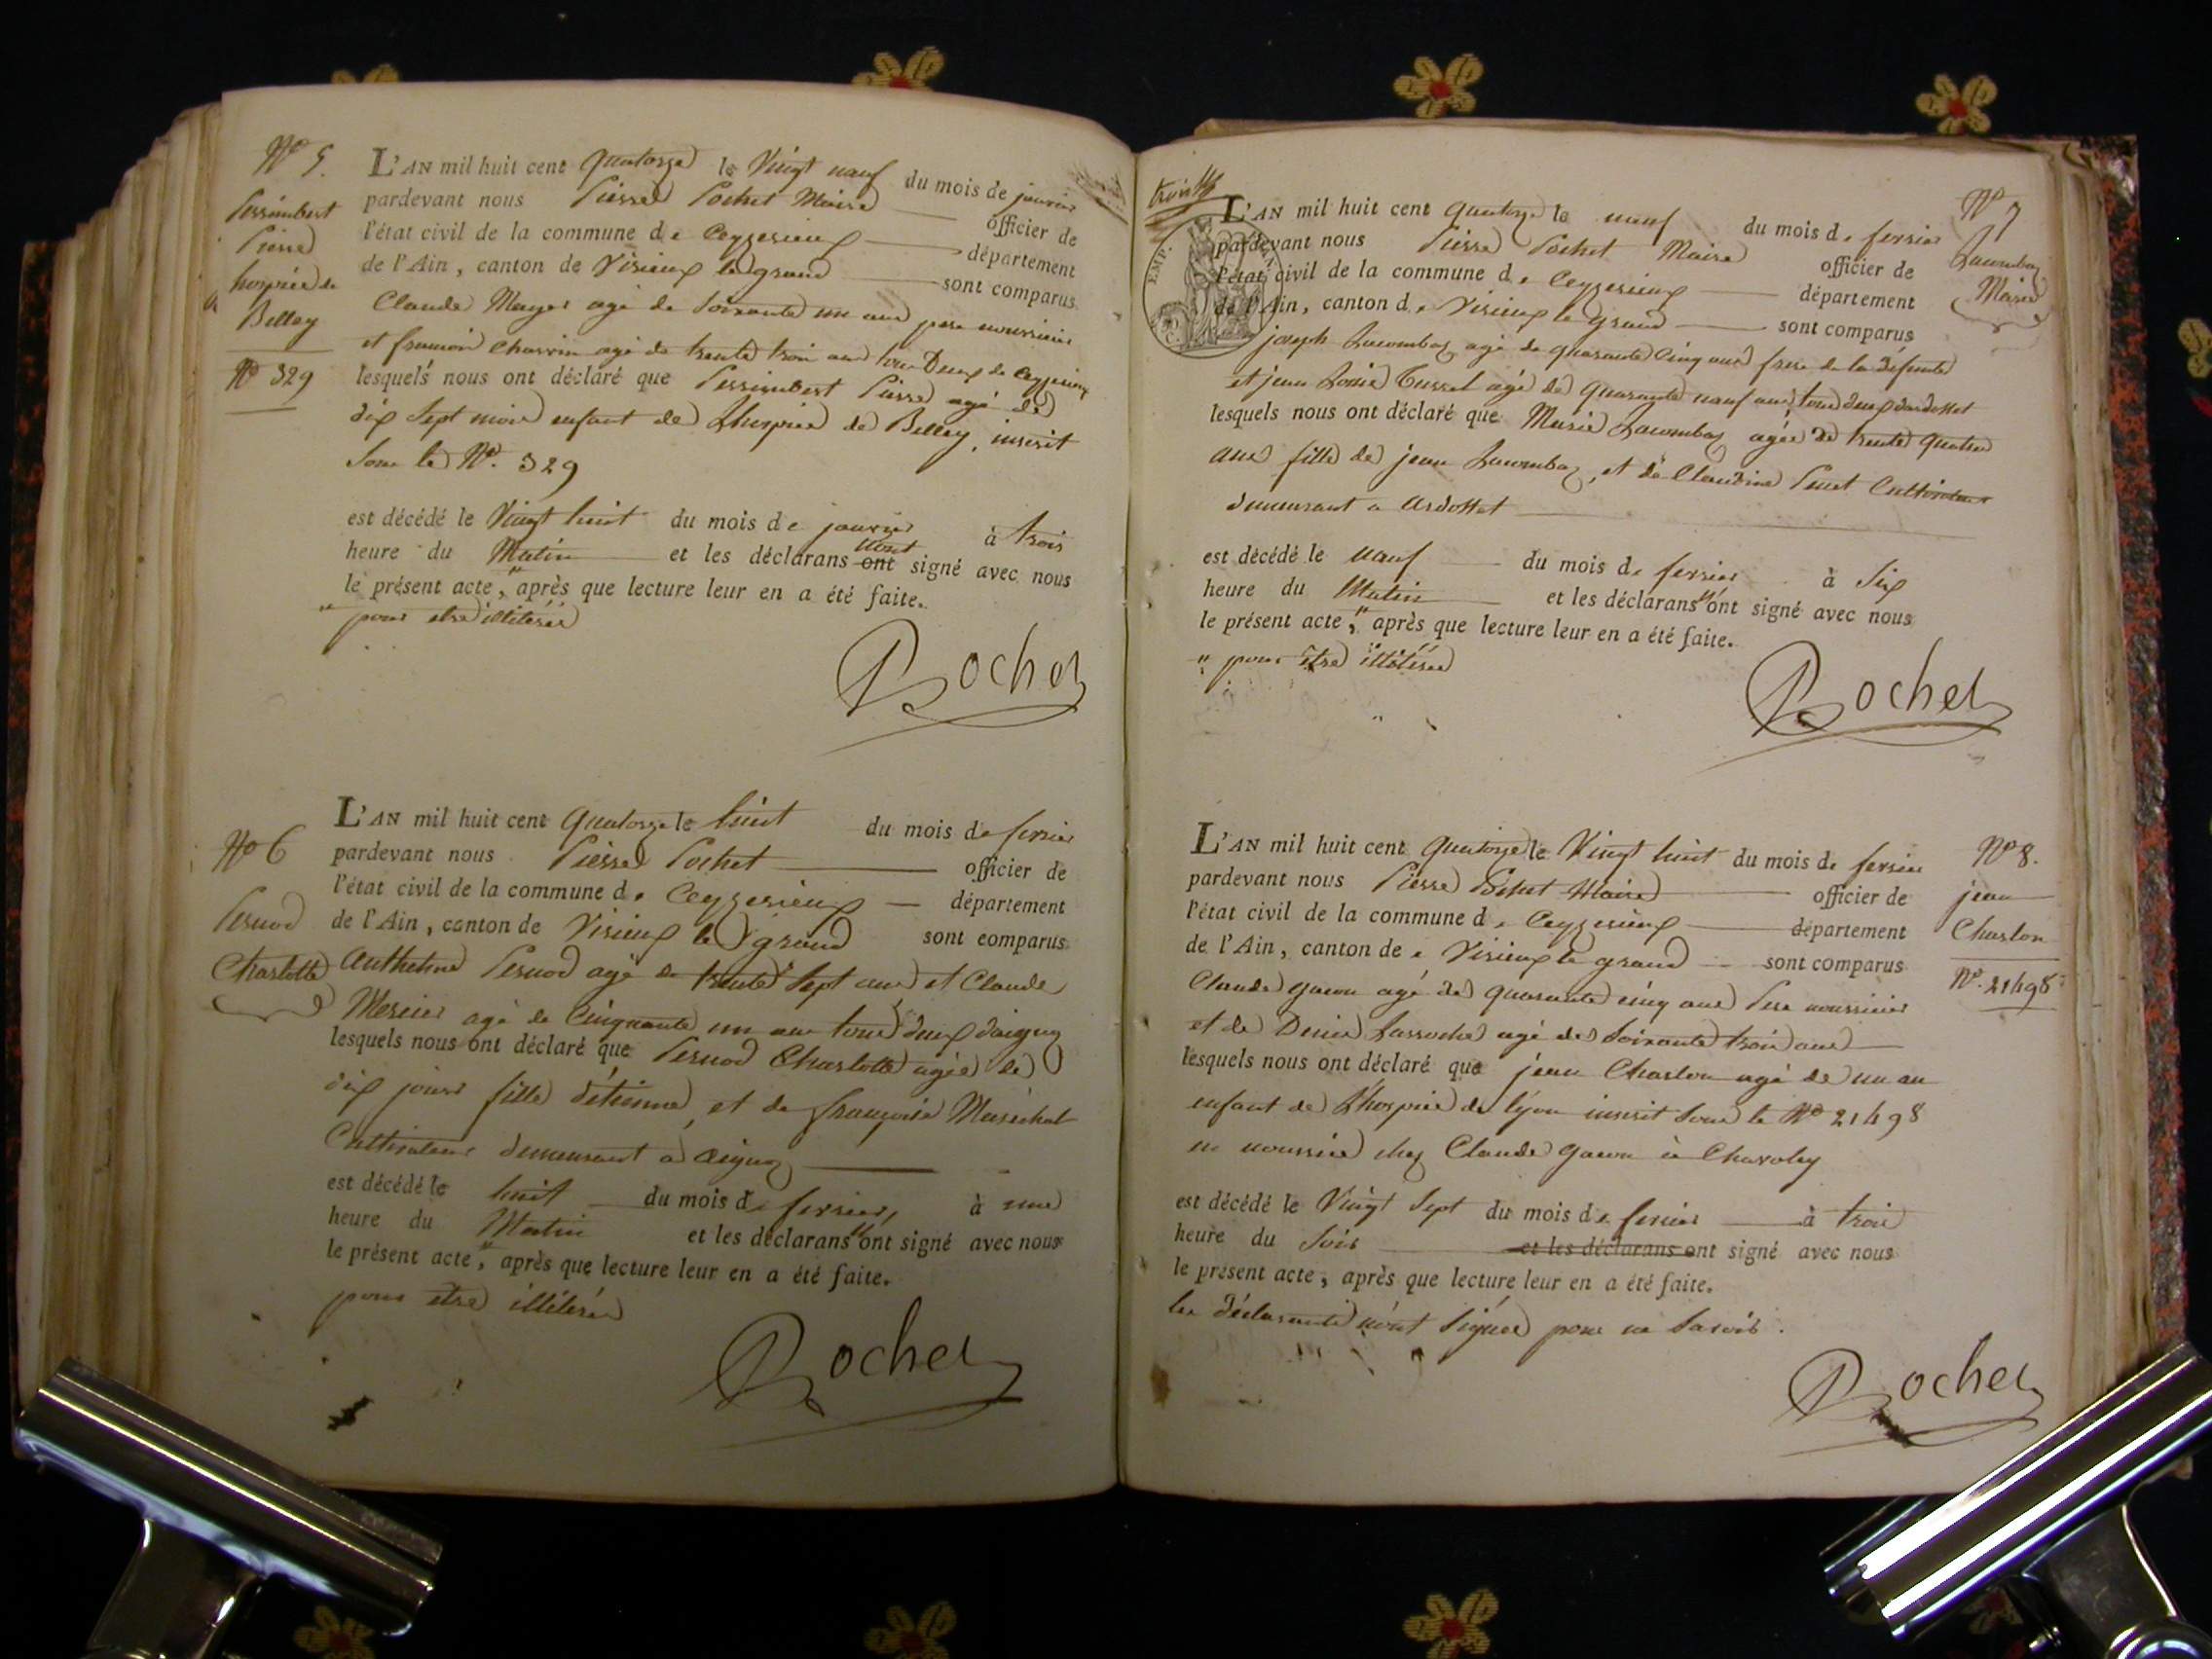 N° 5.
Perrimbert
Pierre
hospice de
Belley
N° 329
L'AN mil huit cent quatorze le Vingt neuf du mois de janvier
pardevant nous Pierre Pochet Maire officier de
l'état civil de la commune de Ceyzerieux département
de l'Ain, canton de Virieux le grand sont comparus
Claude Mayer agé de Soixante un ans pere nourricier
et françois Charvin agé de trente trois ans tous Deux de Ceyzerieux
lesquels nous ont déclaré que Perrimbert Pierre agé de
dix Sept mois enfant de Lhospice de Belley, inscrit
Sous le N°. 329
est décédé le Vingt huit du mois de janvier à trois
heure du Matin et les déclarans ont nont signé avec nous
le présent acte, " après que lecture leur en a été faite.
" pour etre illiterés
Pochet
N° 6
Pernod
Charlotte
L'AN mil huit cent quatorze le huit du mois de fevrier
pardevant nous Pierre Pochet officier de
l'état civil de la commune de Ceyzerieux département
de l'Ain, canton de Virieux le grand sont comparus
Anthelme Pernod agé de trente Sept ans et Claude
Mercier agé de Cinquante un ans tous deux daignoz
lesquels nous ont déclaré que Pernod Charlotte agée de
dix jours fille détienne, et de françoise Maréchal
Cultivateur demeurant à aignoz
est décédé le huit du mois de fevrier, à une
heure du Matin et les déclarans n'ont signé avec nous
le présent acte, " après que lecture leur en a été faite.
pour etre illiterés
Pochet
trois
EMP.
N° 7
Lacombaz
Marie
L'AN mil huit cent quatorze le neuf du mois de fevrier
pardevant nous Pierre Pochet Maire officier de
l'état civil de la commune de Ceyzerieux département
de l'Ain, canton de Virieux le grand sont comparus
joseph Lacombaz agé de quarante Cinq ans frere de la défunte
et jean Louis Cusset agé de quarante neuf ans, tous deux dardosset
lesquels nous ont déclaré que Marie Lacombaz agée de trente quatre
ans fille de jean Lacombaz, et de Claudine Penet Cultivateur
demeurant a ardosset
est décédé le neuf du mois de fevrier à Six
heure du Matin et les déclarans n'ont signé avec nous
le présent acte, " après que lecture leur en a été faite.
" pour être illiterés
Pochet
N° 8.
jean
Charlon
N°. 21498
L'AN mil huit cent quatorze le Vingt huit du mois de fevrier
pardevant nous Pierre Pochet Maire officier de
l'état civil de la commune de Ceyzerieux département
de l'Ain, canton de Virieux le grand sont comparus
Claude gacon agé de quarante cinq ans Pere nourricier
et de Denis Larroche agé de Soixante trois ans
lesquels nous ont déclaré que jean Charlon agé de un an
enfant de Lhospice de lyon inscrit Sous le N° 21498
en nourrice chez Claude gacon à Chavoley
est décédé le Vingt Sept du mois de fevrier à trois
heure du Soir et les déclarans ont signé avec nous
le présent acte, après que lecture leur en a été faite.
les déclarants n'ont Signés pour ne Savoir.
Pochet